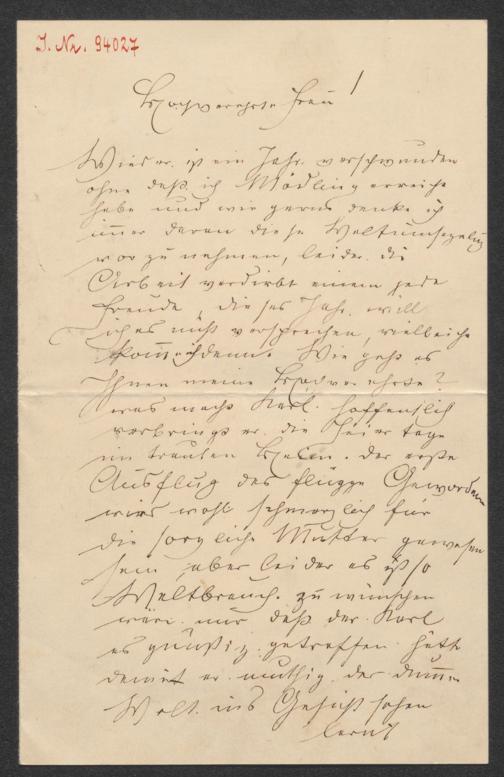 J. Nr. 94027
Hochverehrte Frau!
Wieder ist ein Jahr verschwunden
ohne daß ich Mödling erreicht
habe und wie gerne denke ich
immer daran diese Weltumseglung
vorzunehmen, leider die
Arbeit verdirbt einem jede
Freude, dieses Jahr will
ich es nicht versprechen, vielleicht
komm ich dann. Wie geht es
Ihnen meine Hochverehrte?
was macht Karl. hoffentlich
verbringt er die Feiertage
im trauten Heim. der erste
Ausflug des flügge Gewordenen
wird wohl schmerzlich für
die sorgliche Mutter gewesen
sein, aber leider es ist so
Weltbrauch. zu wünschen
wäre nur daß der Karl
es günstig getroffen hätte
damit er muthig der dummen
Welt ins Gesicht sehen
lernt